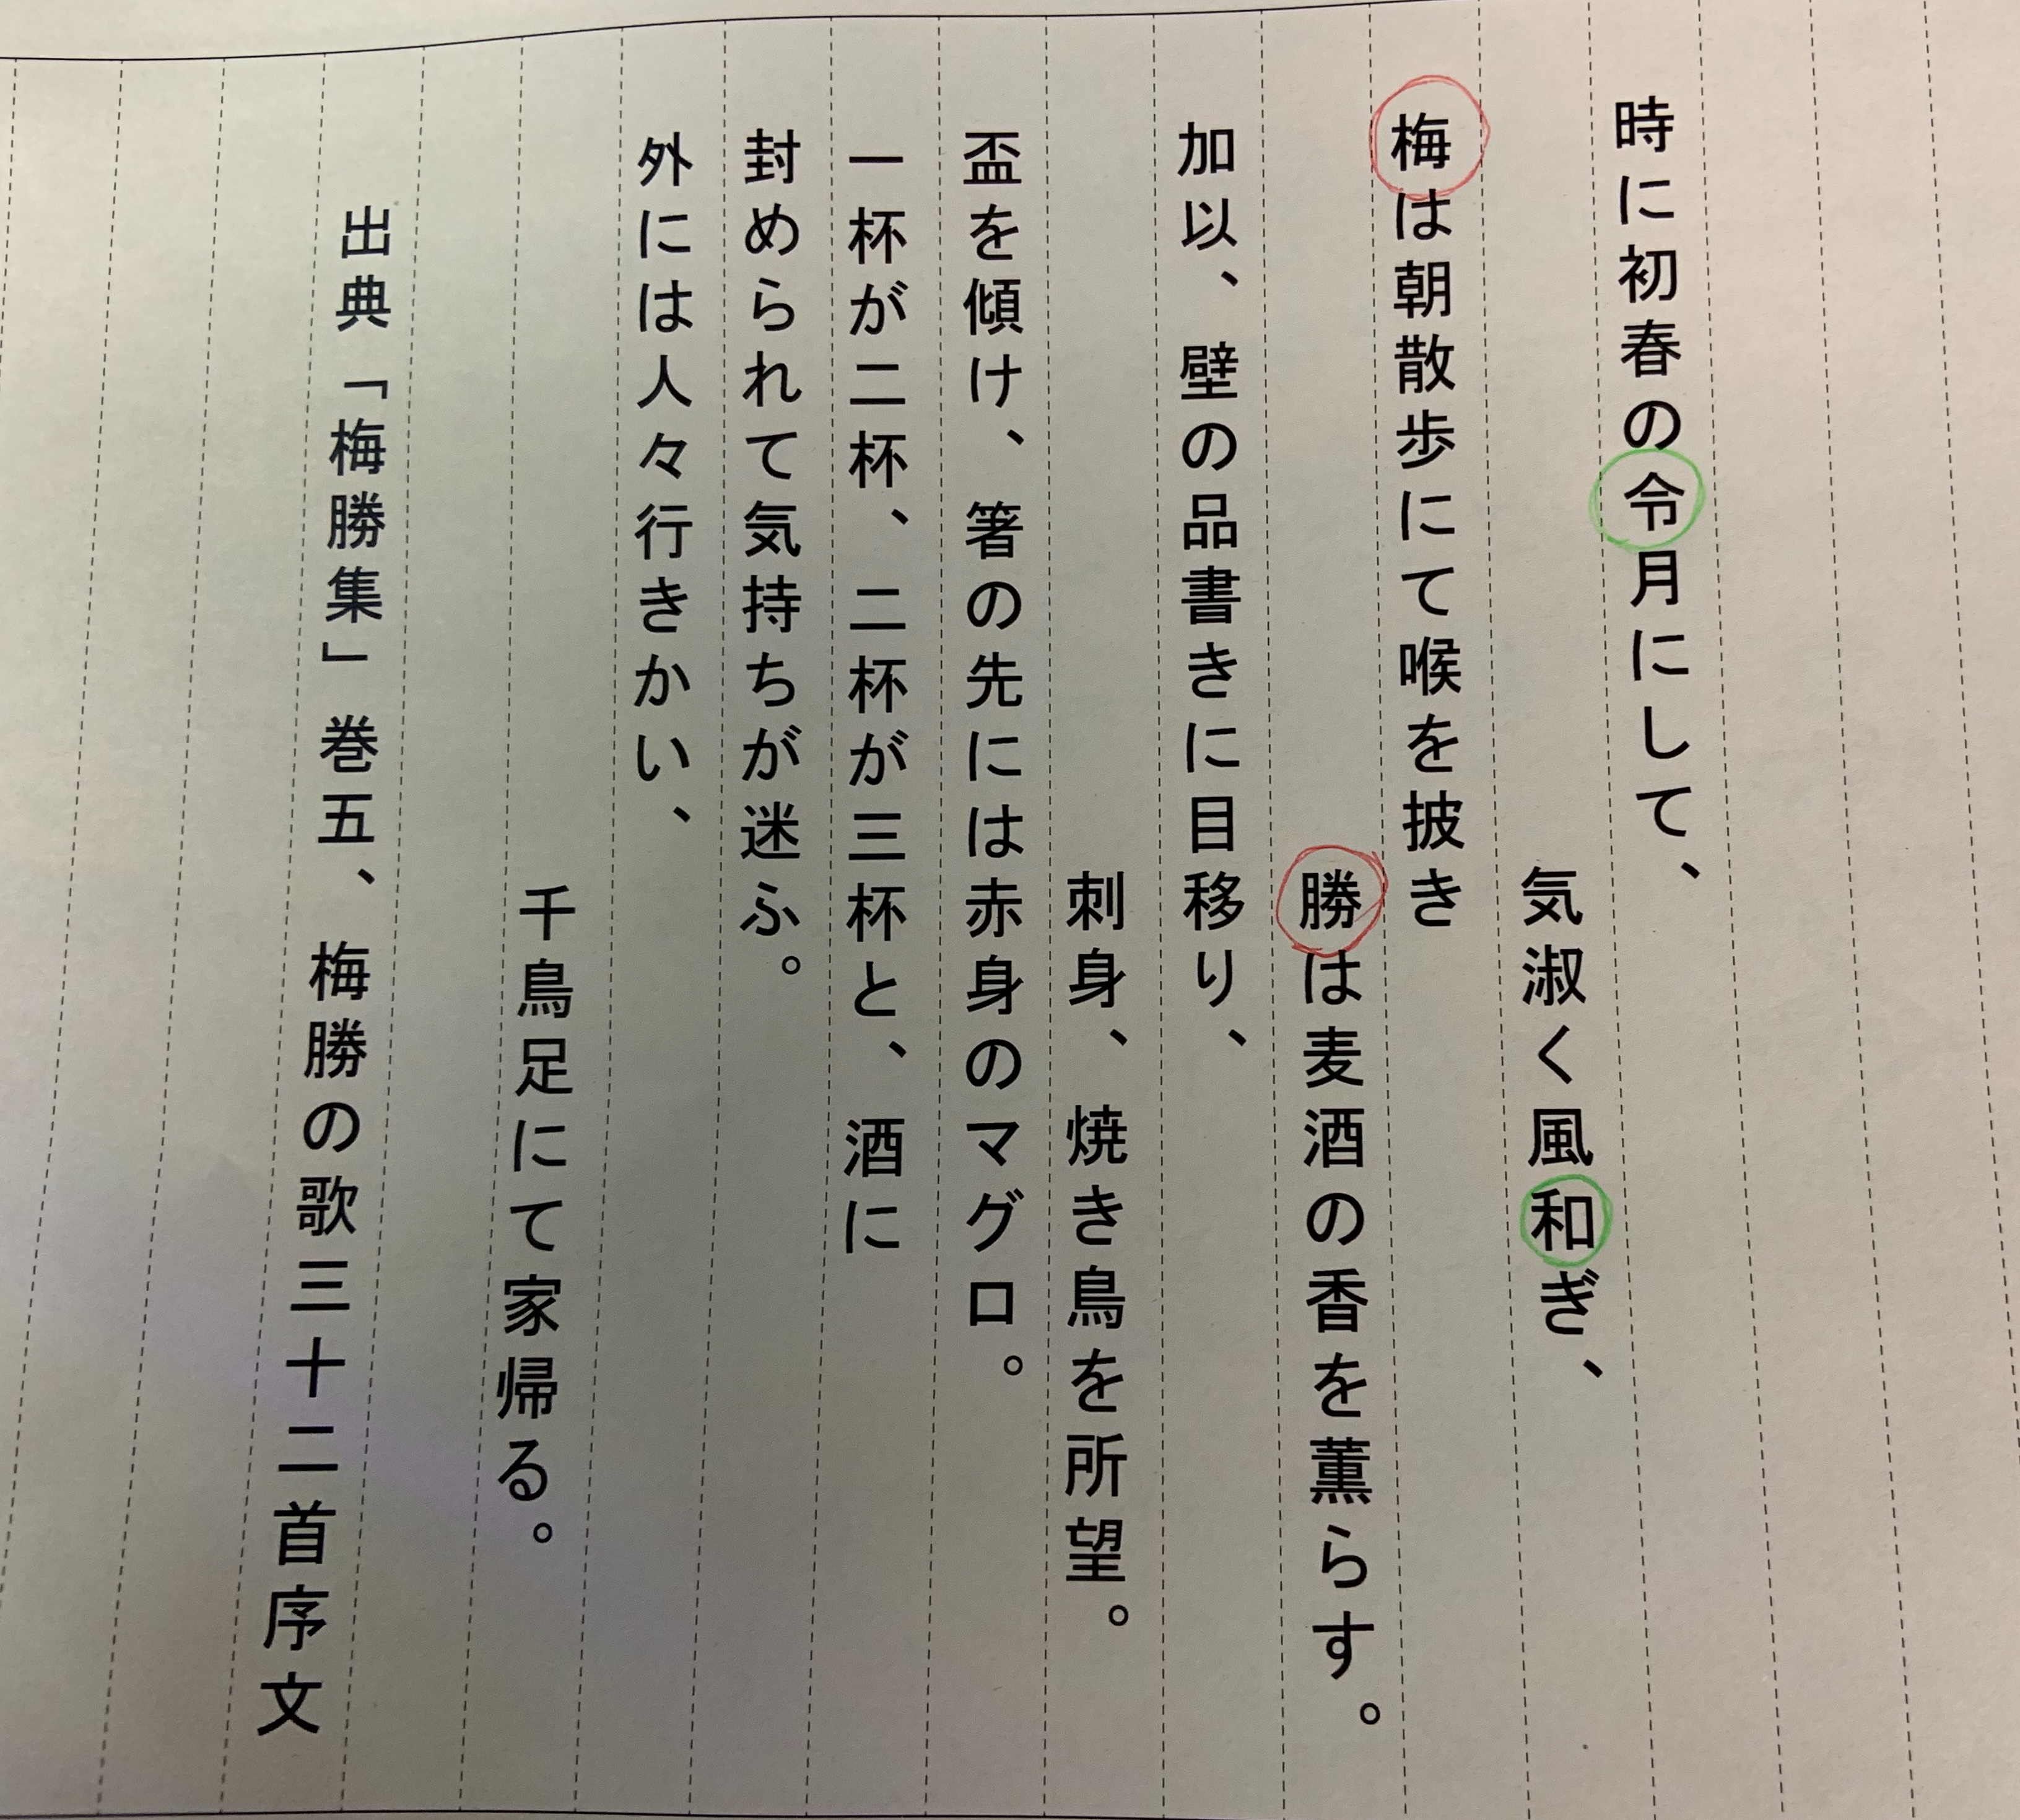 時に初春の令月にして、
気淑く風和ぎ、
梅は朝散歩にて喉を披き
勝は麦酒の香を薫らす。
加以、壁の品書きに目移り、
刺身、焼き鳥を所望。
盃を傾け、箸の先には赤身のマグロ。
一杯が二杯、二杯が三杯と、酒に
封められて気持ちが迷ふ。
外には人々行きかい、
千鳥足にて家帰る。
出典「梅勝集」巻五、梅勝の歌三十二首序文